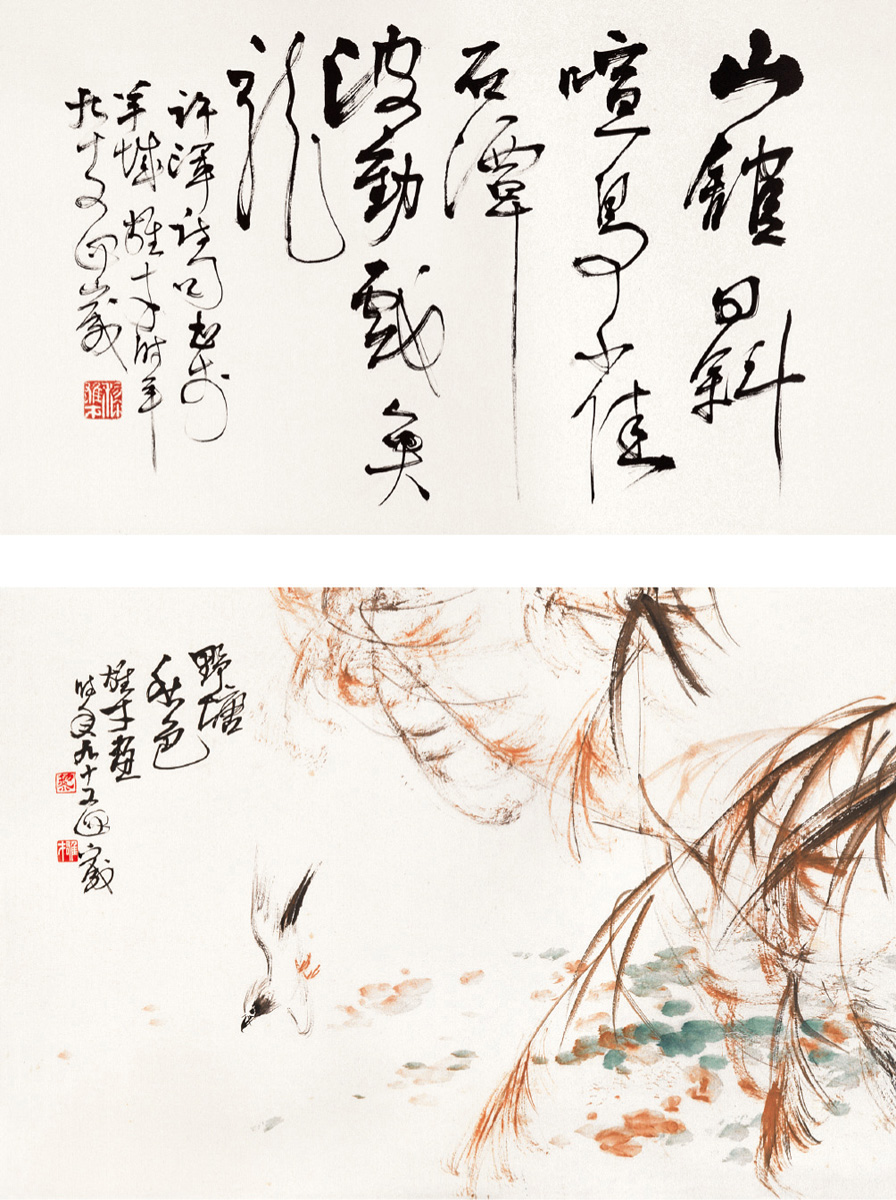 山館日斜
喧鳥雀
石潭
波動戲魚
龍
許渾詩句書於
羊城雄才時年
九十又四歲
野塘
秋色
雄才畫
時年九十又四歲